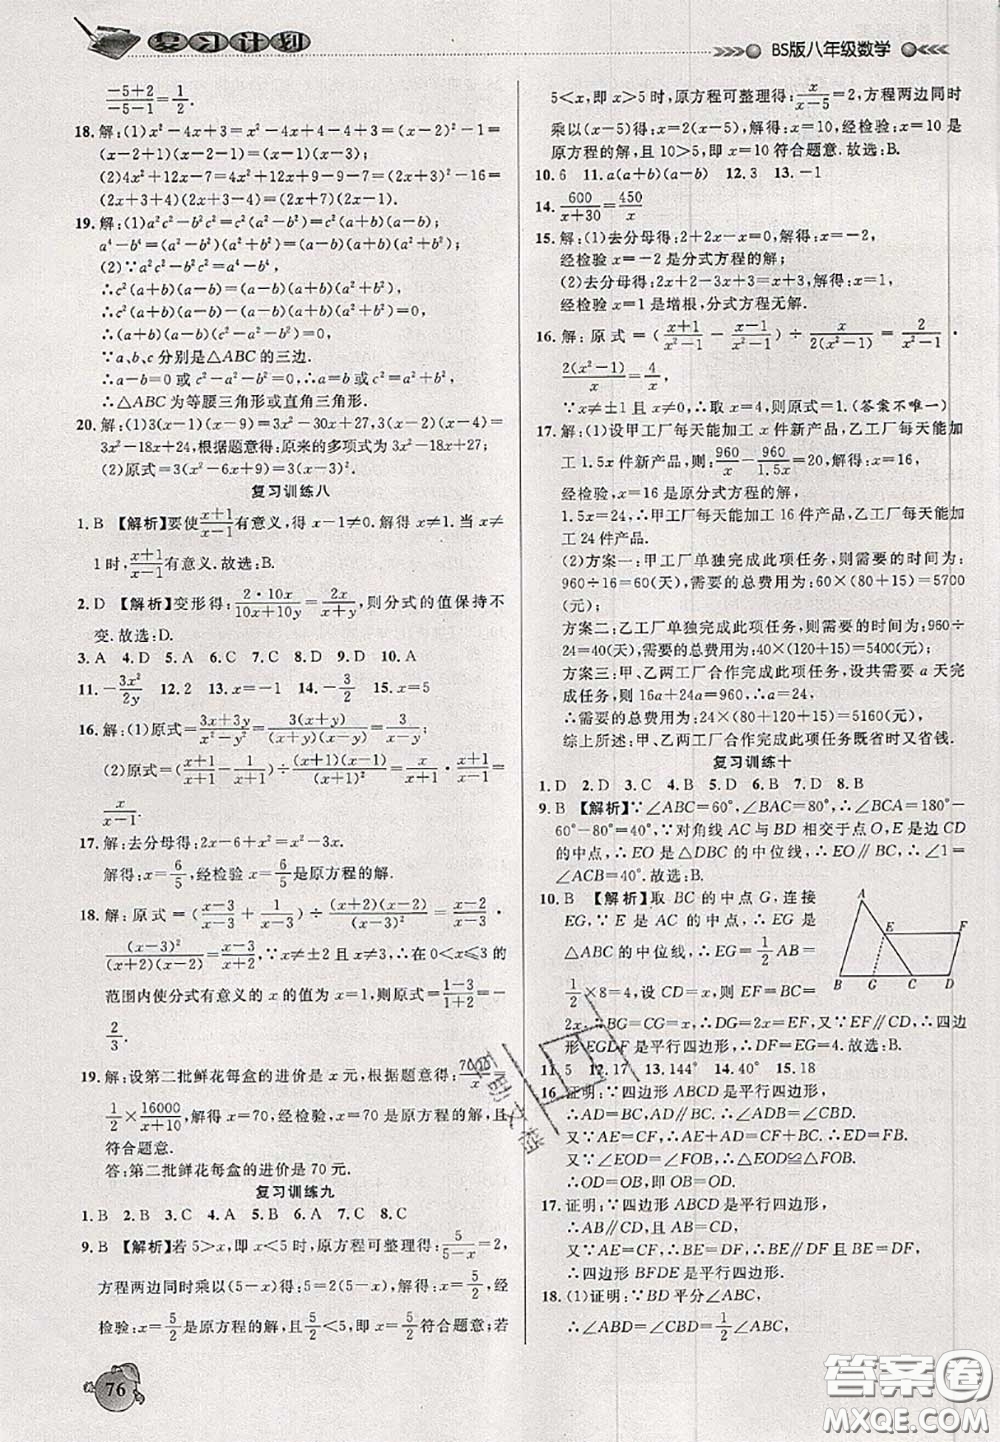 复习计划
BS版八年级数学
(-5+2)/(-5-1)=1/2.
18. 解:(1)x²-4x+3=x²-4x+4-4+3=(x-2)²-1=
(x-2+1)(x-2-1)=(x-1)(x-3).
(2)4x²+12x-7=4x²+12x+9-9-7=(2x+3)²-16=
(2x+3+4)(2x+3-4)=(2x+7)(2x-1).
19. 解:(1)a²c²-b²c²=c²(a²-b²)=c²(a+b)(a-b);
a⁴-b⁴=(a²-b²)(a²+b²)=(a-b)(a+b)(a²+b²);
(2)∵a²c²-b²c²=a⁴-b⁴,
∴c²(a+b)(a-b)=(a-b)(a+b)(a²+b²),
∴c²(a+b)(a-b)-(a-b)(a+b)(a²+b²)=0,
∴(a+b)(a-b)(c²-a²-b²)=0,
∵a、b、c分别是△ABC的三边.
∴a-b=0或c²-a²-b²=0,∴a=b或c²=a²+b²,
∴△ABC为等腰三角形或直角三角形.
20. 解:(1)3(x-1)(x-9)=3x²-30x+27,3(x-2)(x-4)=
3x²-18x+24,根据题意得:原来的多项式为3x²-18x+27;
(2)原式=3(x²-6x+9)=3(x-3)².
复习训练八
1. B 【解析】要使(x+1)/(x-1)有意义,得x-1≠0.解得x≠1.当x≠
1时,(x+1)/(x-1)有意义,故选:B.
2. D 【解析】变形得:(2·10x)/(10x+10y)=2x/(x+y),则分式的值保持不
变.故选:D.
3. A 4. D 5. A 6. C 7. C 8. D 9. D 10. A
11. -3x²/2y 12. 2 13. x=-1 14. -3/2 15. x=5
16. 解:(1)原式=(3x+3y)/(x²-y²)=3(x+y)/((x+y)(x-y))=3/(x-y);
(2)原式=(x²-1)/(x²-2x+1)÷(x+1)/x=(x+1)(x-1)/(x-1)²·x/(x+1)=
x/(x-1).
17. 解:去分母得:2x-6+x²=x²-3x.
解得:x=6/5,经检验x=6/5是原方程的解.
18. 解:原式=((x-3)/(x-3)+1/(x-3))÷(x+2)(x-2)/(x-3)²=(x-2)/(x-3)·
(x-3)²/((x+2)(x-2))=(x-3)/(x+2),∵x≠±2且x≠3,∴在0<x≤3的
范围内使分式有意义的x的值为x=1,则原式=(1-3)/(1+2)=-
2/3.
19. 解:设第二批鲜花每盒的进价是x元,根据题意得:7000/x=
1/2×16000/(x+10),解得x=70,经检验,x=70是原方程的解,且
符合题意.
答:第二批鲜花每盒的进价是70元.
复习训练九
1. B 2. B 3. C 4. A 5. B 6. B 7. B 8. C
9. B 【解析】若5>x,即x<5时,原方程可整理得:5/(5-x)=2,
方程两边同时乘以(5-x)得:5=2(5-x),解得:x=5/2,经
检验:x=5/2是原方程的解,且5/2<5,即x=5/2符合题意;若
5<x,即x>5时,原方程可整理得:x/(x-5)=2,方程两边同时
乘以(x-5)得:x=2(x-5),解得:x=10,经检验:x=10是
原方程的解,且10>5,即x=10符合题意.故选:B.
10. 6 11. a(a+b)(a-b) 12. 3 13. -1
14. 600/(x+30)=450/x
15. 解:(1)去分母得:2+2x-x=0,解得:x=-2,
经检验x=-2是分式方程的解;
(2)去分母得:2-2x-3+3x=0,解得:x=1,
经检验x=1是增根,分式方程无解.
16. 解:原式=((x+1)/(x²-1)-(x-1)/(x²-1))÷x/2(x²-1)=2/(x²-1)·
2(x²-1)/x=4/x,
∵x≠±1且x≠0,∴取x=4,则原式=1.(答案不唯一)
17. 解:(1)设甲工厂每天能加工x件新产品,乙工厂每天能加
工1.5x件新产品,则:960/x-960/1.5x=20,解得:x=16,
经检验,x=16是原分式方程的解,
1.5x=24,∴甲工厂每天能加工16件产品,乙工厂每天能加
工24件产品.
(2)方案一:甲工厂单独完成此项任务,则需要的时间为:
960÷16=60(天),需要的总费用为:60×(80+15)=5700
(元);
方案二:乙工厂单独完成此项任务,则需要的时间为:960÷
24=40(天),需要的总费用为:40×(120+15)=5400(元);
方案三:甲、乙两工厂合作完成此项任务,设共需要a天完
成任务,则16a+24a=960,∴a=24,
∴需要的总费用为:24×(80+120+15)=5160(元),
综上所述:甲、乙两工厂合作完成此项任务既省时又省钱.
复习训练十
1. D 2. D 3. C 4. B 5. D 6. B 7. D 8. B
9. B 【解析】∵∠ABC=60°,∠BAC=80°,∴∠BCA=180°-
60°-80°=40°,∵对角线AC与BD相交于点O,E是边CD
的中点,∴EO是△DBC的中位线,∴EO∥BC,∴∠1=
∠ACB=40°.故选:B.
10. B 【解析】取BC的中点G,连接
EG,∵E是AC的中点,∴EG是
△ABC的中位线,∴EG=1/2AB=
1/2×8=4,设CD=x,则EF=BC=
2x,∴BG=CG=x,∴EF=2x=DG,又∵EF∥CD,∴四边
形EGDF是平行四边形,∴DF=EG=4.故选:B.
A E F B G C D
11. 5 12. 17 13. 144° 14. 40° 15. 18
16. 证明:∵四边形ABCD是平行四边形,
∴AD=BC,AD∥BC,∴∠ADB=∠CBD,
又∵AE=CF,∴AE+AD=CF+BC,∴ED=FB,
又∵∠EOD=∠FOB,∴△EOD≌△FOB,
∴OD=OB,∴OE=OF.
17. 证明:∵四边形ABCD是平行四边形,
∴AB∥CD,且AB=CD,
又∵AE=CF,∴BE=DF,
∴BE∥DF且BE=DF,
∴四边形BFDE是平行四边形.
18. (1)证明:∵BD平分∠ABC,
∴∠ABD=∠DBC=1/2∠ABC,
76
答案圈
MXQE.COM